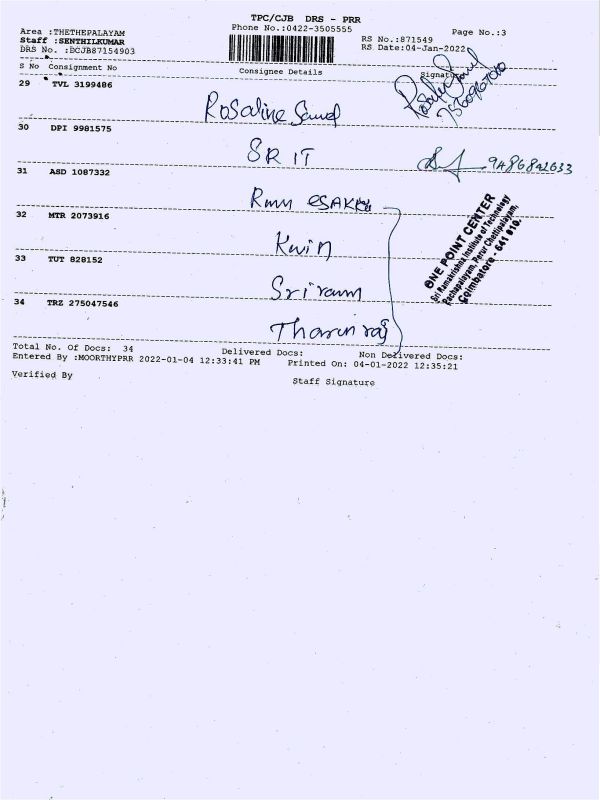 TPC/CJB DRS - PRR
Phone No.:0422-3505555
Area :THETHEPALAYAM
RS No.:871549
Page No.:3
Staff :SENTHILKUMAR
RS Date:04-Jan-2022
DRS No. :DCJB87154903
S No Consignment No Consignee Details Signature
29 TVL 3199486
Rosaline
30 DPI 9981575
SRIT
31 ASD 1087332
ESAKKI
32 MTR 2073916
Kwin
33 TUT 828152
Sriram
34 TRZ 275047546
Tharun raj
ONE POINT CENTER
Sri Ramakrishna Institute of Technology
Pachapalayam, Perur Chettipalayam,
Coimbatore - 641 010.
Total No. Of Docs: 34 Delivered Docs: Non Delivered Docs:
Entered By :MOORTHYPRR 2022-01-04 12:33:41 PM Printed On: 04-01-2022 12:35:21
Verified By Staff Signature